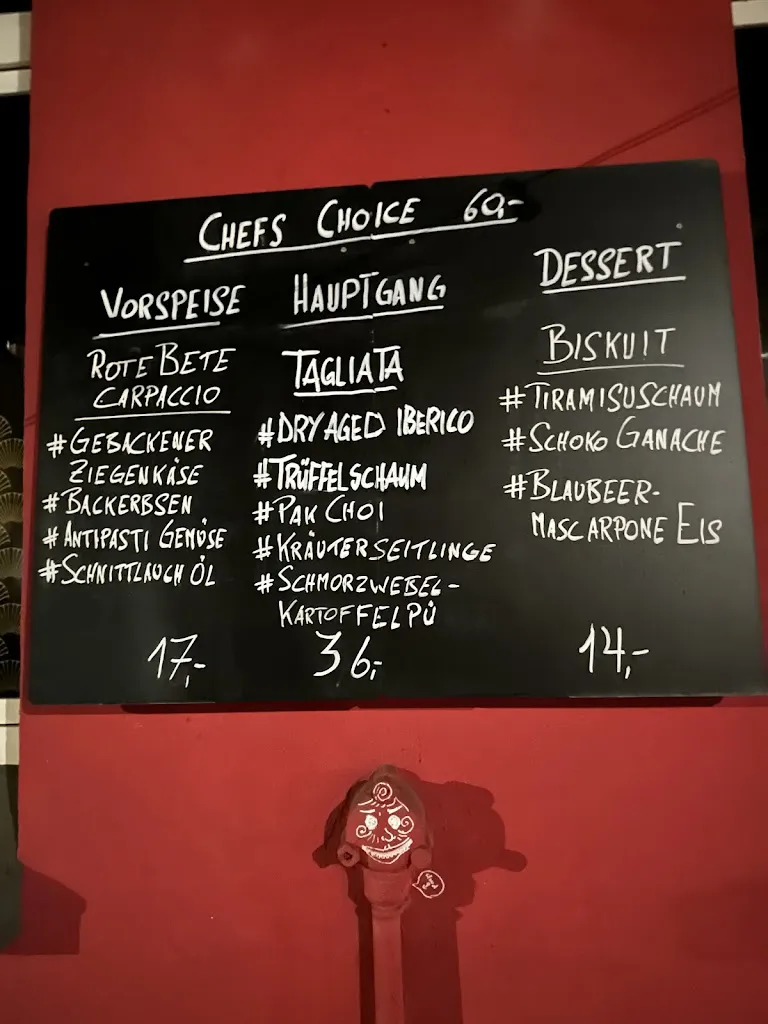 CHEFS CHOICE 60,-
VORSPEISE
ROTE BETE
CARPACCIO
#GEBACKENER
ZIEGENKÄSE
#BACKERBSEN
#ANTIPASTI GEMÜSE
#SCHNITTLAUCH ÖL
17,-
HAUPTGANG
TAGLIATA
#DRY AGED IBERICO
#TRÜFFELSCHAUM
#PAK CHOI
#KRÄUTERSEITLINGE
#SCHMORZWEBEL-
KARTOFFELPÜ
36,-
DESSERT
BISKUIT
#TIRAMISUSCHAUM
#SCHOKO GANACHE
#BLAUBEER-
MASCARPONE EIS
14,-